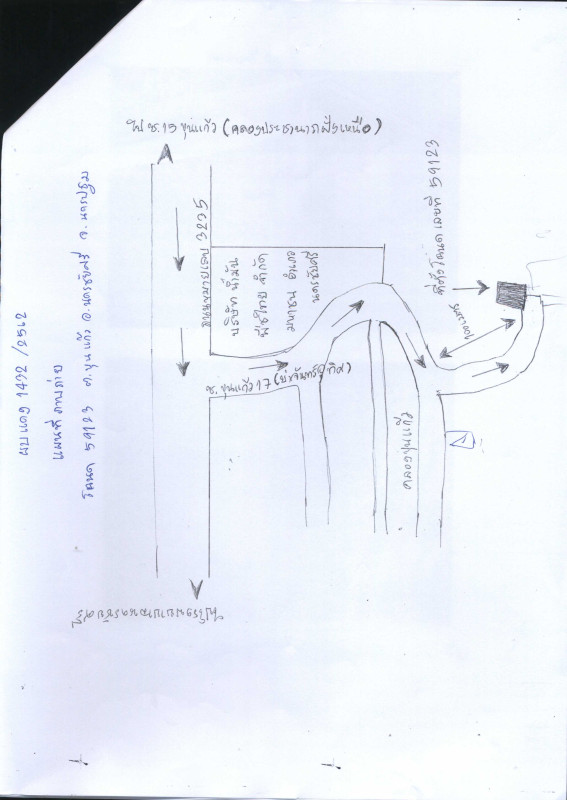 ผบ แดง 1432 /2562
แผนที่ ภาพถ่าย
โฉนด 59123 ต.ขุนแก้ว อ.นครชัยศรี จ.นครปฐม
ไป ซ.15 ขุนแก้ว (คลองประชานารถฝั่งเหนือ)
ถนนหมายเลข 3235
บริษัท น้ำมัน
พืชไทย จำกัด
มหาชน อำเภอ
นครชัยศรี
ซ. ขุนแก้ว 17
คลองขุนแก้ว
ที่ตั้งโฉนด เลขที่ 59123
100 เมตร
ไปโรงพยาบาลนครชัยศรี